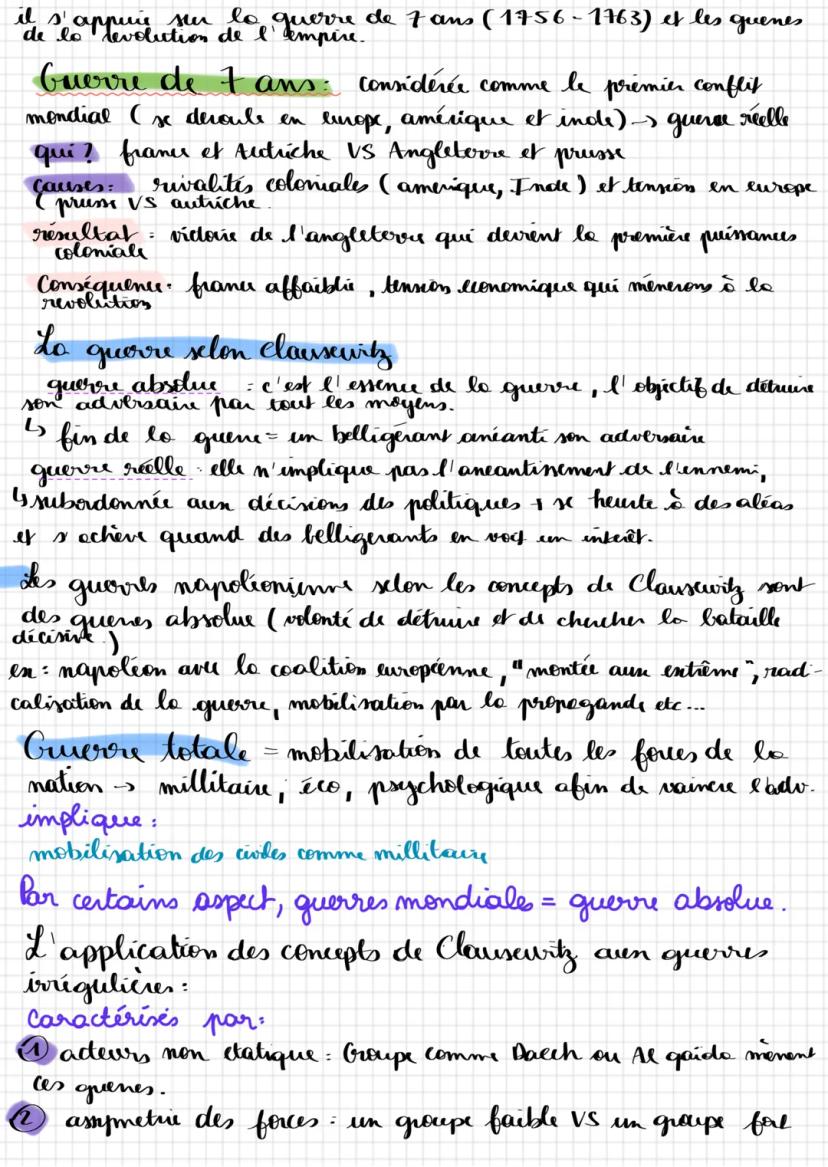 il s'appuie sur la guerre de 7 ans (1756-1763) et les guerres
de la revolution de l'empire.
Guerre de 7 ans : considérée comme le premier conflit
mondial ( se deroule en europe, amérique et inde) -> guerre réelle
qui ? france et Autriche VS Angleterre et prusse
causes : rivalités coloniales ( amerique, Inde ) et tension en europe
( prusse VS autriche.
résultat : victoire de l'angleterre qui devient la première puissances
coloniale
Conséquence : france affaiblie, tension economique qui mènerons à la
revolution
La guerre selon Clausewitz
guerre absolue = c'est l'essence de la guerre, l'objectif de détruire
son adversaire par tout les moyens.
↳ fin de la guerre = un belligérant anéanti son adversaire
guerre réelle : elle n'implique pas l'aneantissement de l'ennemi,
↳ subordonnée aux décisions des politiques + se heurte à des aléas
et s'achève quand des belligerants en voit un interêt.
Les guerres napoléonienne selon les concepts de Clausewitz sont
des guerres absolue ( volonté de détruire et de chercher la bataille
décisive.)
ex : napoléon avec la coalition européenne, "montée aux extrême", radi-
calisation de la guerre, mobilisation par la propagande etc...
Guerre totale = mobilisation de toutes les forces de la
nation -> millitaire, éco, psychologique afin de vaincre l'adv.
implique :
mobilisation des civiles comme millitaire
Par certains aspect, guerres mondiales = guerre absolue.
L'application des concepts de Clausewitz aux guerres
irrégulières :
Caractérisés par :
① acteurs non etatique : Groupe comme Daech ou Al qaida mènent
ces guerres.
② assymetrie des forces : un groupe faible VS un groupe fort